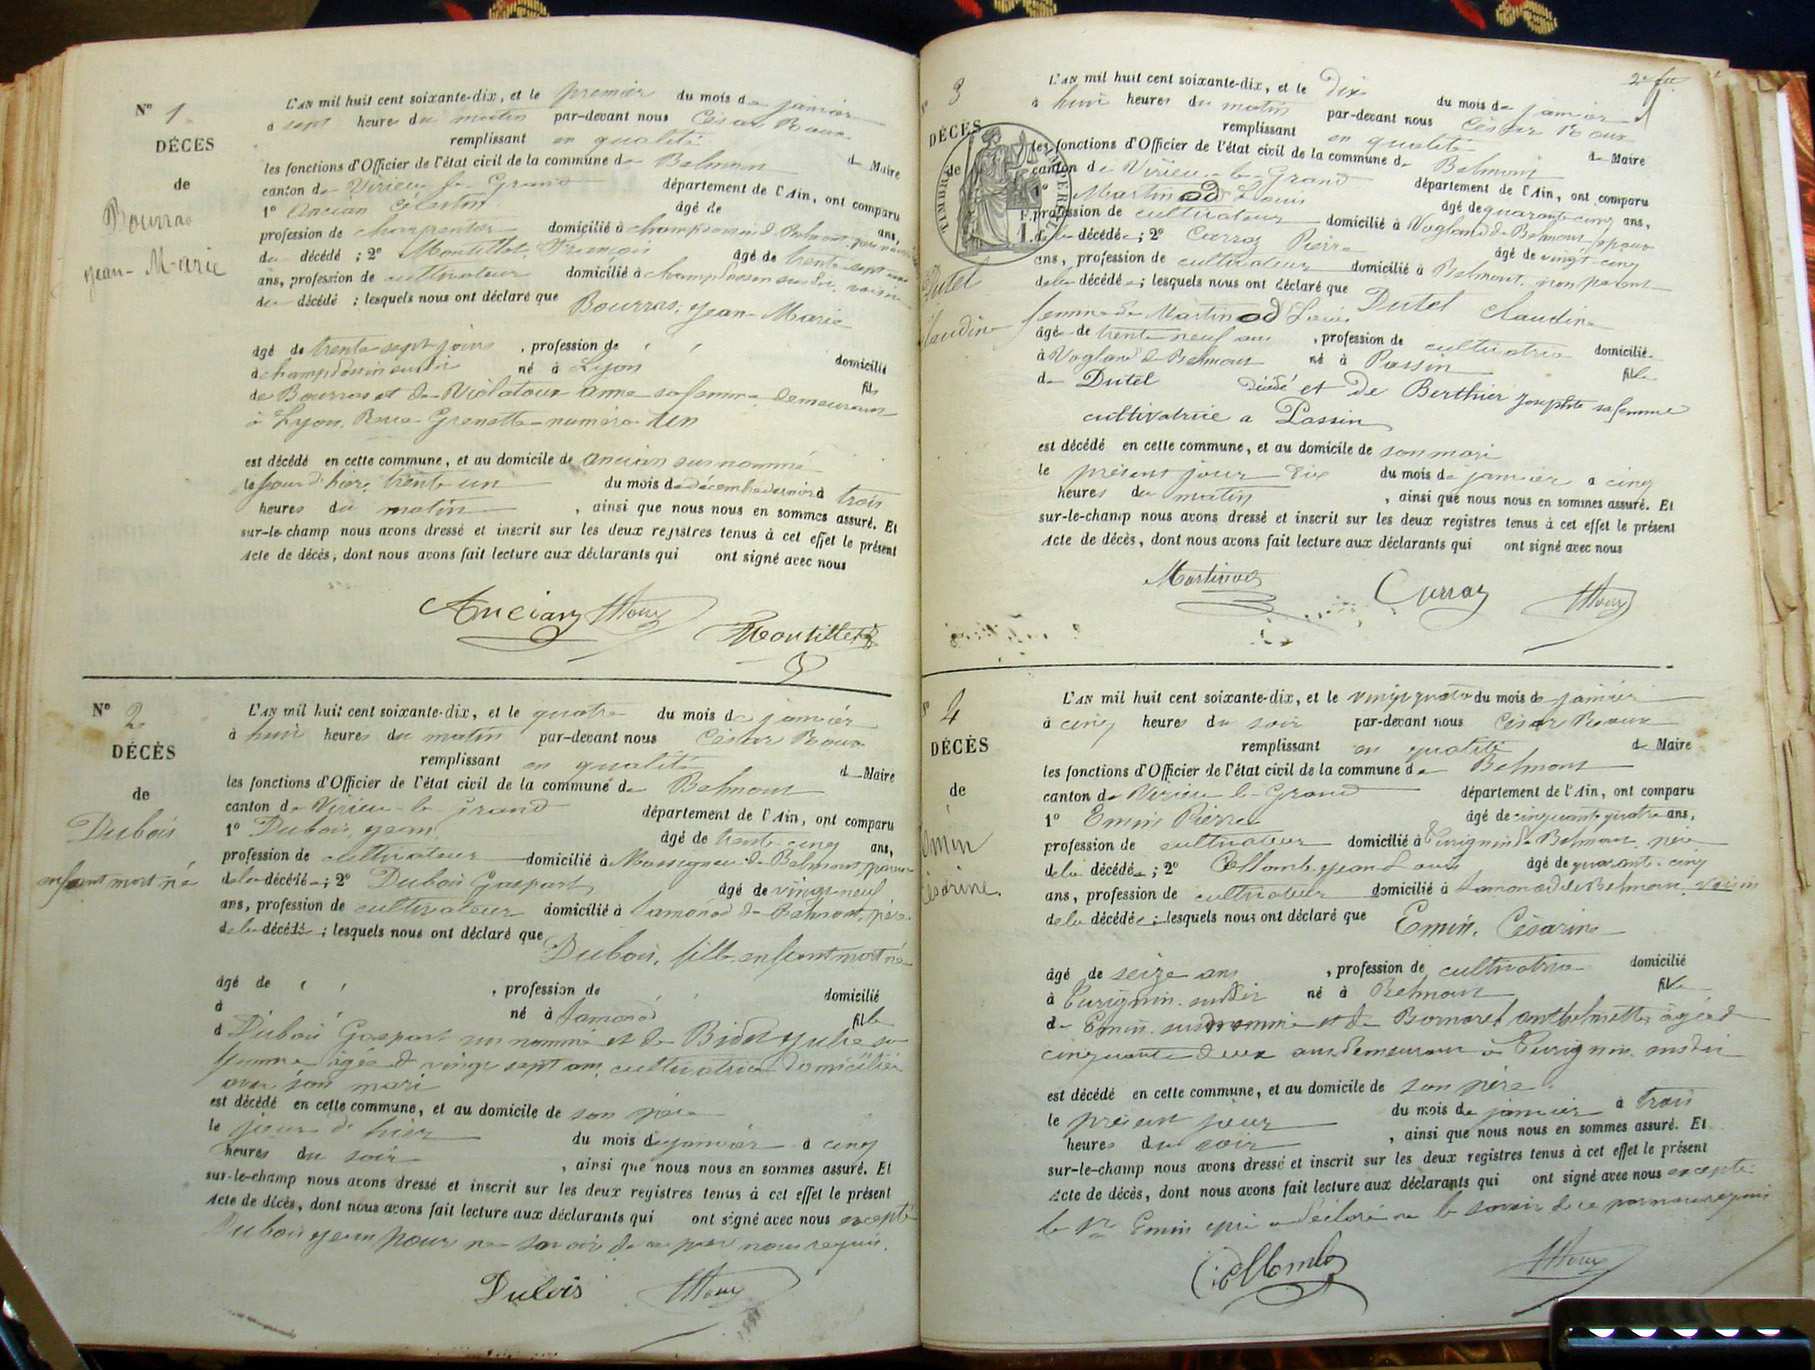 N° 1
DÉCÈS
de
Bourras
Jean-Marie
L'AN mil huit cent soixante-dix, et le premier du mois de janvier
à sept heures du matin par-devant nous César Roux
remplissant en qualité de Maire
les fonctions d'Officier de l'état civil de la commune de Belmont
canton de Virieu le Grand département de l'Ain, ont comparu
1° Ancian Célestin âgé de ans,
profession de charpentier domicilié à champdossin de Belmont
du décédé ; 2° Montillet François âgé de trente sept
ans, profession de cultivateur domicilié à champdossin susdit, voisin
du décédé ; lesquels nous ont déclaré que Bourras, Jean-Marie
âgé de trente sept jours , profession de domicilié
à champdossin susdit né à Lyon fils
de Bourras et de Violatoux Anne sa femme demeurant
à Lyon, Rue Grenette numéro un
est décédé en cette commune, et au domicile de Ancian susnommé
le jour d'hier trente un du mois de décembre dernier à trois
heures du matin , ainsi que nous nous en sommes assuré. Et
sur-le-champ nous avons dressé et inscrit sur les deux registres tenus à cet effet le présent
Acte de décès, dont nous avons fait lecture aux déclarants qui ont signé avec nous
Ancian Roux
Montillet
N° 2
DÉCÈS
de
Dubois
enfant mort né
L'AN mil huit cent soixante-dix, et le quatre du mois de janvier
à huit heures du matin par-devant nous César Roux
remplissant en qualité de Maire
les fonctions d'Officier de l'état civil de la commune de Belmont
canton de Virieu-le-Grand département de l'Ain, ont comparu
1° Dubois, Jean âgé de trente cinq ans,
profession de cultivateur domicilié à Massignieu de Belmont
de la décédée ; 2° Dubois Gaspard âgé de vingt-neuf
ans, profession de cultivateur domicilié à Samonod de Belmont, père
de la décédé ; lesquels nous ont déclaré que Dubois, fille, enfant mort né
âgé de , profession de domicilié
à né à Samonod fille
d Dubois Gaspard sus nommé et de Bidet Julie sa
femme âgée de vingt sept ans, cultivatrice domiciliée
avec son mari
est décédé en cette commune, et au domicile de son père
le jour d'hier du mois de janvier à cinq
heures du soir , ainsi que nous nous en sommes assuré. Et
sur-le-champ nous avons dressé et inscrit sur les deux registres tenus à cet effet le présent
Acte de décès, dont nous avons fait lecture aux déclarants qui ont signé avec nous excepté
Dubois Jean pour ne savoir de ce par nous requis.
Dubois Roux
2e fet
N° 3
DÉCÈS
de
Dutel
Claudine
TIMBRE IMPÉRIAL
L'AN mil huit cent soixante-dix, et le dix du mois de janvier
à huit heures du matin par-devant nous César Roux
remplissant en qualité de Maire
les fonctions d'Officier de l'état civil de la commune de Belmont
canton de Virieu-le-Grand département de l'Ain, ont comparu
1° Martinod Louis âgé de quarante cinq ans,
profession de cultivateur domicilié à Vogland de Belmont, époux
de la décédée ; 2° Curraz Pierre âgé de vingt-cinq
ans, profession de cultivateur domicilié à Belmont, non parent
de la décédée ; lesquels nous ont déclaré que Dutel Claudine
femme de Martinod Louis
âgé de trente neuf ans , profession de cultivatrice domicilié
à Vogland de Belmont né à Passin fille
de Dutel décédé et de Berthier Josephte sa femme
cultivatrice a Passin
est décédé en cette commune, et au domicile de son mari
le présent jour dix du mois de janvier à cinq
heures du matin , ainsi que nous nous en sommes assuré. Et
sur-le-champ nous avons dressé et inscrit sur les deux registres tenus à cet effet le présent
Acte de décès, dont nous avons fait lecture aux déclarants qui ont signé avec nous
Martinod Curraz Roux
N° 4
DÉCÈS
de
Emin
Césarine
L'AN mil huit cent soixante-dix, et le vingt quatre du mois de janvier
à cinq heures du soir par-devant nous César Roux
remplissant en qualité de Maire
les fonctions d'Officier de l'état civil de la commune de Belmont
canton de Virieu-le-Grand département de l'Ain, ont comparu
1° Emin Pierre âgé de cinquante quatre ans,
profession de cultivateur domicilié à Eurignin de Belmont, père
de la décédée ; 2° Collomb Jean Louis âgé de quarante-cinq
ans, profession de cultivateur domicilié à Samonod de Belmont, voisin
de la décédée ; lesquels nous ont déclaré que Emin, Césarine
âgé de seize ans , profession de cultivatrice domicilié
à Eurignin susdit né à Belmont fille
de Emin susnommé et de Bornaret Anthelmette âgée de
cinquante deux ans demeurant à Eurignin susdit
est décédé en cette commune, et au domicile de son père
le présent jour du mois de janvier à trois
heures du soir , ainsi que nous nous en sommes assuré. Et
sur-le-champ nous avons dressé et inscrit sur les deux registres tenus à cet effet le présent
Acte de décès, dont nous avons fait lecture aux déclarants qui ont signé avec nous excepté
le Sr Emin qui a déclaré ne le savoir de ce par nous requis
Collomb Roux